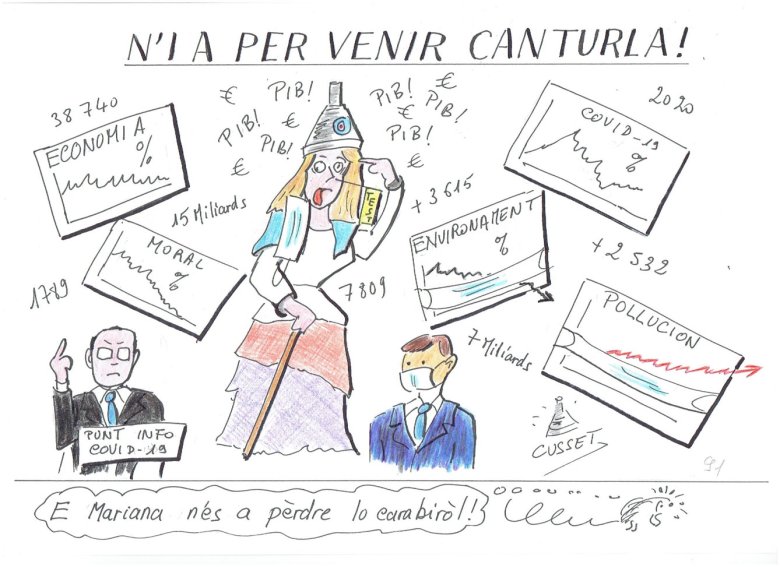 N'I A PER VENIR CANTURLA!
38 740
ECONOMIA
%
€ PIB! € PIB! PIB!
PIB! € € PIB!
PIB! PIB!
€ €
2020
COVID-19
%
15 Miliards
MORAL
%
TEST!
+ 3 615
ENVIRONAMENT
%
+ 2 532
POLLUCION
1789
7 809
7 Miliards
PUNT INFO
COVID-19
CUSSET
91
E Mariana n'és a pèrdre lo carabiròl!